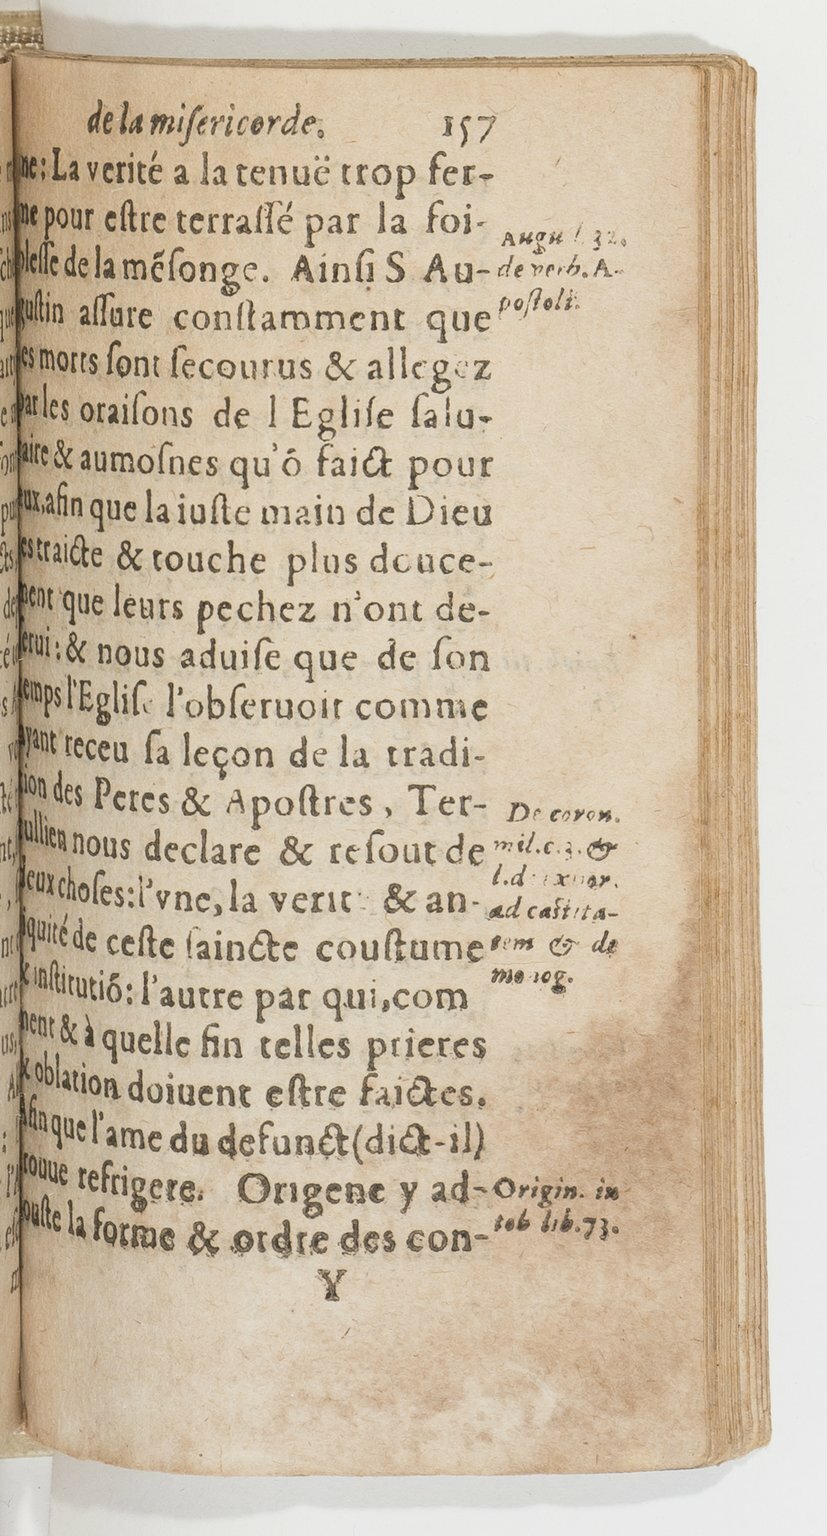 de la miſericorde. 157
ne: La verité a la tenuë trop fer-
me pour eſtre terraſſé par la foi-
bleſſe de la mẽſonge. Ainſi S Au-
guſtin aſſure conſtamment que
les morts ſont ſecourus & allegez
par les oraiſons de l Egliſe ſalu-
taire & aumoſnes qu'ō faict pour
eux, afin que la iuſte main de Dieu
les traicte & touche plus douce-
ment que leurs pechez n'ont de-
ſerui: & nous aduiſe que de ſon
temps l'Egliſe l'obſeruoit comme
ayant receu ſa leçon de la tradi-
tion des Peres & Apoſtres, Ter-
tullien nous declare & reſout de
deux choſes: l'vne, la verité & an-
tiquité de ceſte ſaincte couſtume
& inſtitutiō: l'autre par qui, com
ment & à quelle fin telles prieres
& oblation doiuent eſtre faictes.
Afin que l'ame du defunct (dict-il)
trouue refrigere. Origene y ad-
iouſte la forme & ordre des con-
Y
Augu 32.
de verb. A-
poſtoli.
De coron.
mil. c. 3. &
ad caſtita-
tem & de
monog.
Origin. in
lib. 73.